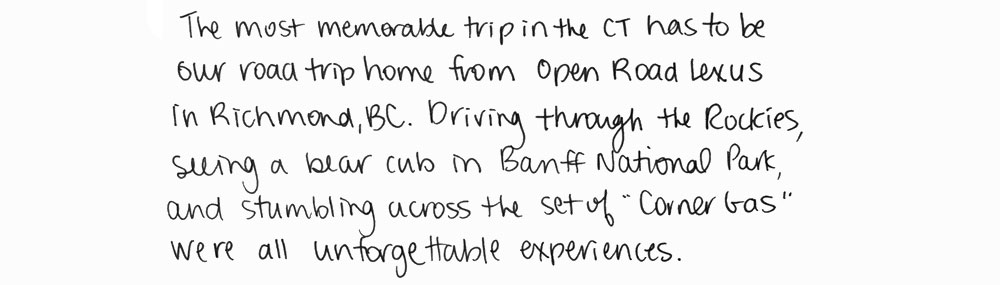 The most memorable trip in the CT has to be
our road trip home from Open Road Lexus
in Richmond, BC. Driving through the Rockies,
seeing a bear cub in Banff National Park,
and stumbling across the set of "Corner Gas"
were all unforgettable experiences.